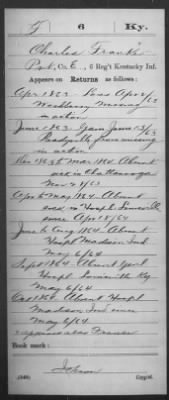 F 6 Ky.
Charles Franks
Pvt., Co. E., 6 Reg't Kentucky Inf.
Appears on Returns as follows:
Apr 1863 Loss Apr 8/63
missing
in action
June 1863 Gain June 13/63
from missing
in action
Nov 1863 to Mar 1864 Absent
sick in Chattanooga
Nov 1863
Apr & May 1864 Absent
sick in Hospl Louisville
since Apr 18/64
June to Aug 1864 Absent
Hospl Madison Ind.
May 6/64
Sept 1864 Absent
Hospl Louisville Ky
May 6/64
Oct 1864 Absent Hospl
Madison Ind since
May 6/64
appears also
Book mark:
(546) Copyist.